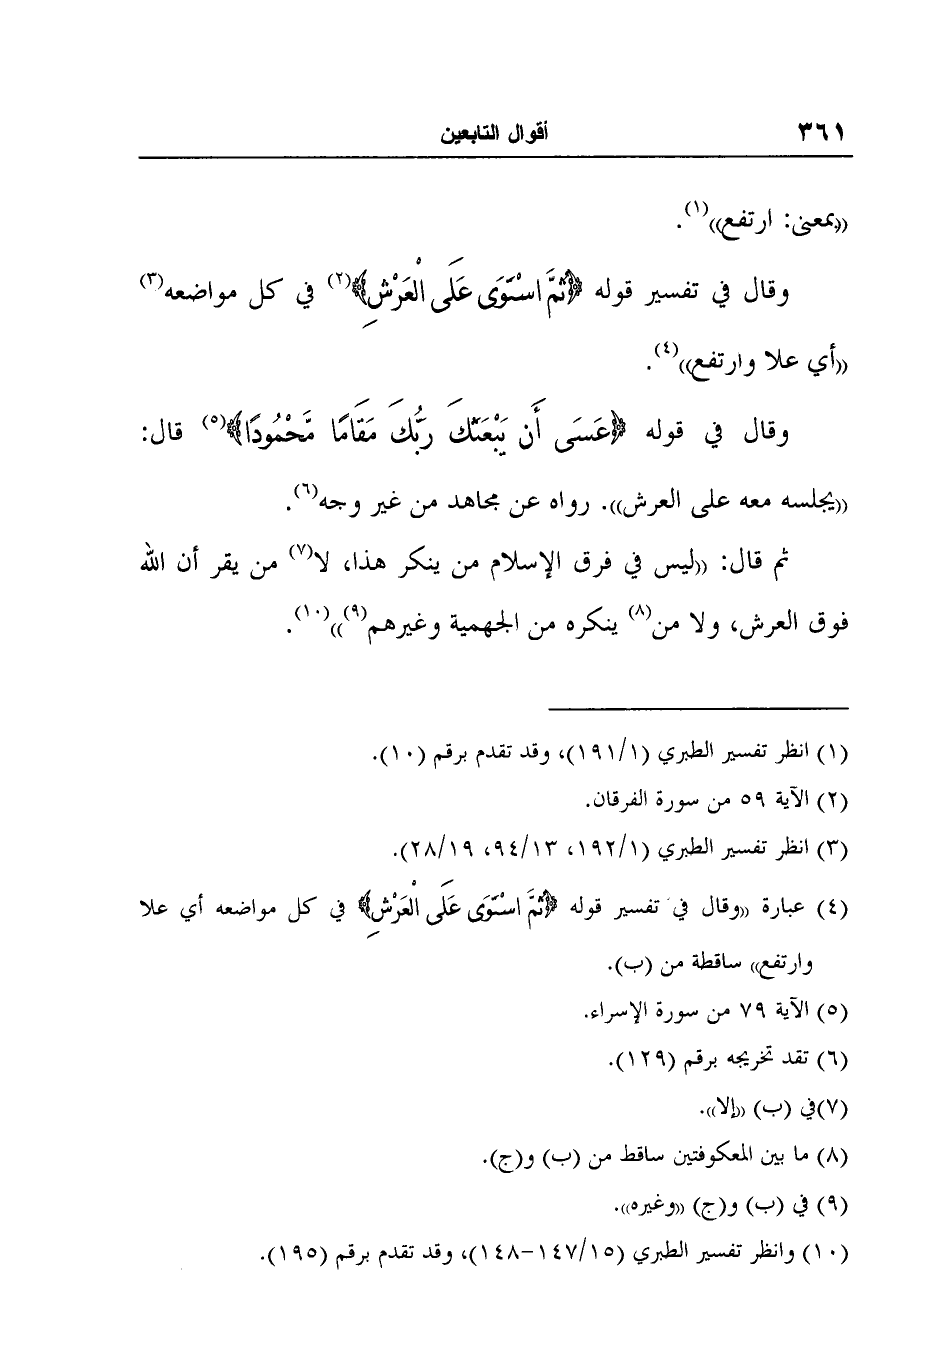 ٣٦١ أقوال التابعين
«بمعنى: ارتفع»(١).
وقال في تفسير قوله ﴿ثُمَّ اسْتَوَى عَلَى الْعَرْشِ﴾(٢) في كل مواضعه(٣)
«أي علا وارتفع»(٤).
وقال في قوله ﴿عَسَى أَن يَبْعَثَكَ رَبُّكَ مَقَامًا مَّحْمُودًا﴾(٥) قال:
«يجلسه معه على العرش». رواه عن مجاهد من غير وجه(٦).
ثم قال: «ليس في فرق الإسلام من ينكر هذا، لا(٧) من يقر أن الله
فوق العرش، ولا من(٨) ينكره من الجهمية وغيرهم(٩)»(١٠).
(١) انظر تفسير الطبري (١٩١/١)، وقد تقدم برقم (١٠).
(٢) الآية ٥٩ من سورة الفرقان.
(٣) انظر تفسير الطبري (١٩٢/١، ٩٤/١٣، ٢٨/١٩).
(٤) عبارة «وقال في تفسير قوله ﴿ثُمَّ اسْتَوَى عَلَى الْعَرْشِ﴾ في كل مواضعه أي علا
وارتفع» ساقطة من (ب).
(٥) الآية ٧٩ من سورة الإسراء.
(٦) تقد تخريجه برقم (١٢٩).
(٧)في (ب) «إلا».
(٨) ما بين المعكوفتين ساقط من (ب) و(ج).
(٩) في (ب) و(ج) «وغيره».
(١٠) وانظر تفسير الطبري (١٤٧/١٥-١٤٨)، وقد تقدم برقم (١٩٥).